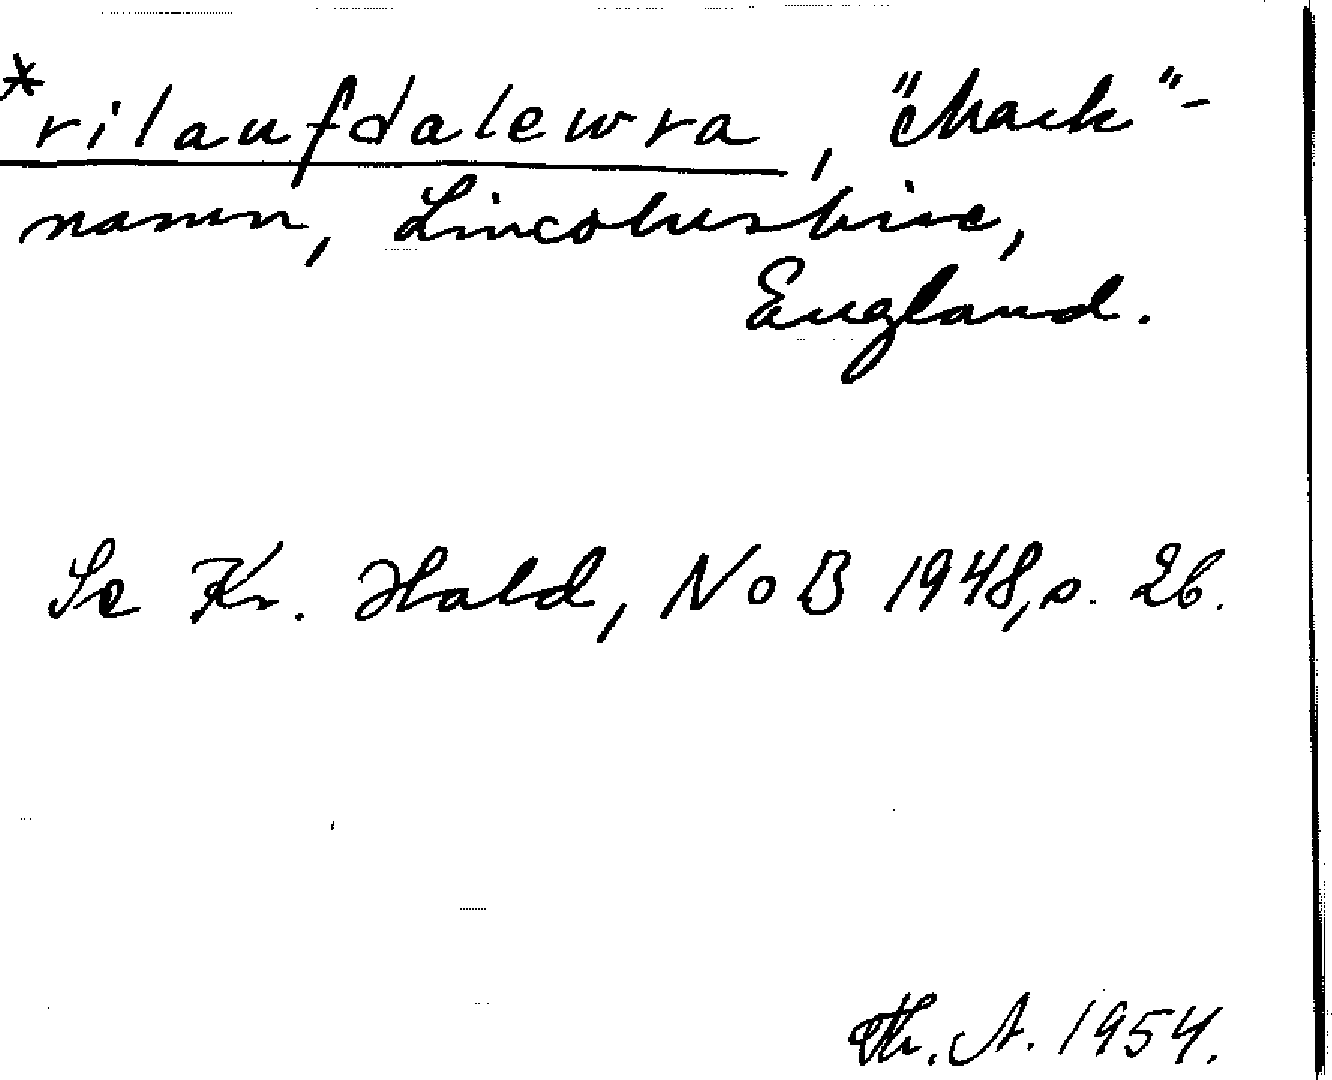 *rilaufdalewra, "Mark"-
namn, Lincolnshire,
England.
Se Kr. Hald, NoB 1948, s. 26.
Th. A. 1954.